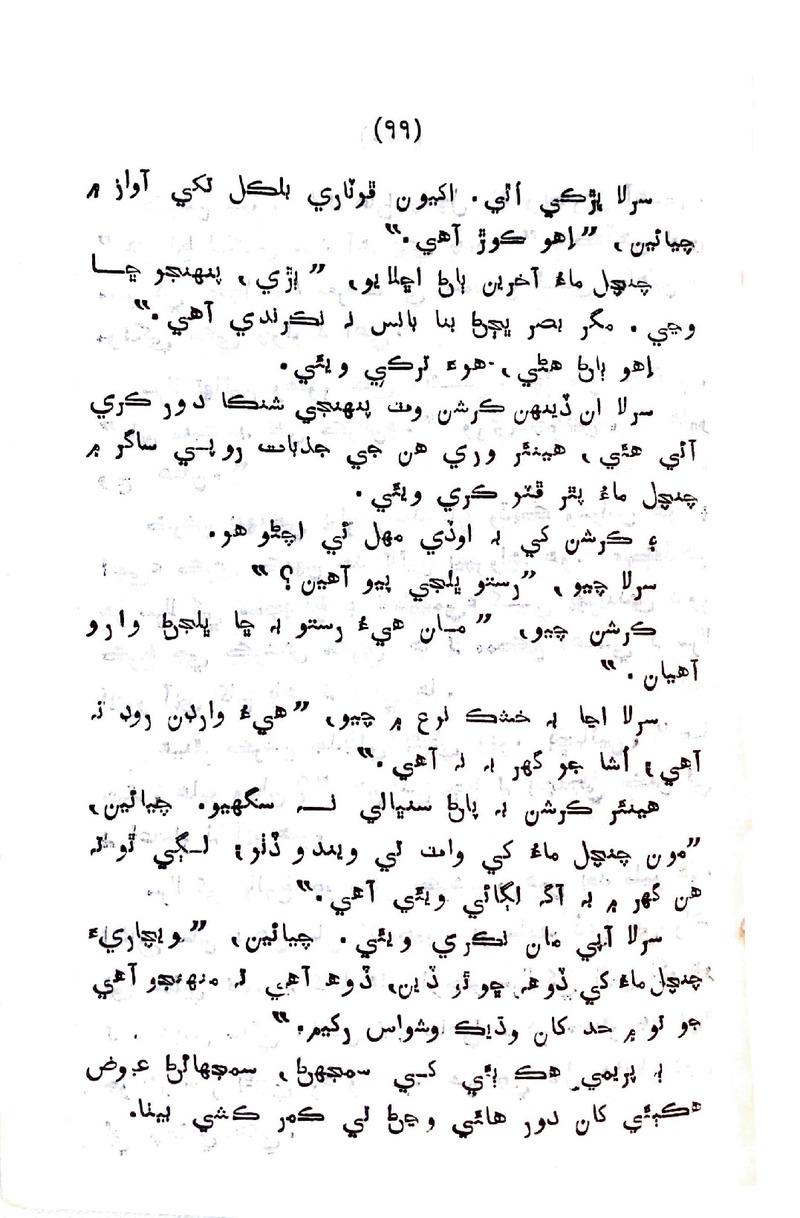 (۹۹)
سرلا ڀڙڪي اٿي. اکيون ڦوٽاري بلڪل تکي آواز ۾
چيائين، ”اهو ڪوڙ آهي.“
چنچل ماءُ آخرين باڻ اڇلايو، ”ٻڙي، پنهنجو ڇا
وڃي. مگر بصر ڀڃڻ بنا بانس نہ نڪرندي آهي.“
اهو باڻ هڻي، هوءَ ترڪي ويئي.
سرلا ان ڏينهن ڪرشن وٽ پنهنجي شنڪا دور ڪري
آئي هئي، هينئر وري هن جي جذبات روپي ساگر ۾
چنچل ماءُ پٿر ڦٽو ڪري ويئي.
۽ ڪرشن کي بہ اوڏي مهل ئي اچڻو هو.
سرلا چيو، ”رستو ڀلجي پيو آهين؟“
ڪرشن چيو، ”مان هيءُ رستو بہ ڇا ڀلجڻ وارو
آهيان.“
سرلا اڃا بہ خشڪ نرع ۾ چيو، ”هيءُ وارڊن روڊ نہ
آهي؛ اُشا جو گهر بہ نہ آهي.“
هينئر ڪرشن بہ پاڻ سنڀالي نہ سگهيو. چيائين،
”مون چنچل ماءُ کي واٽ تي ويندو ڏٺو؛ لڳي ٿو تہ
هن گهر ۾ بہ آگ لڳائي ويئي آهي.“
سرلا آپي مان نڪري ويئي. چيائين، ”ويچاريءَ
چنچل ماءُ کي ڏوهہ ڇو ٿر ڏين، ڏوهہ آهي تہ منهنجو آهي
جو تو ۾ حد کان وڌيڪ وشواس رکيم.“
ٻہ پريمي هڪ ٻئي کي سمجهڻ، سمجهائڻ عوض
هڪٻئي کان دور هٽي وڃڻ تي ڪمر ڪشي بيٺا.